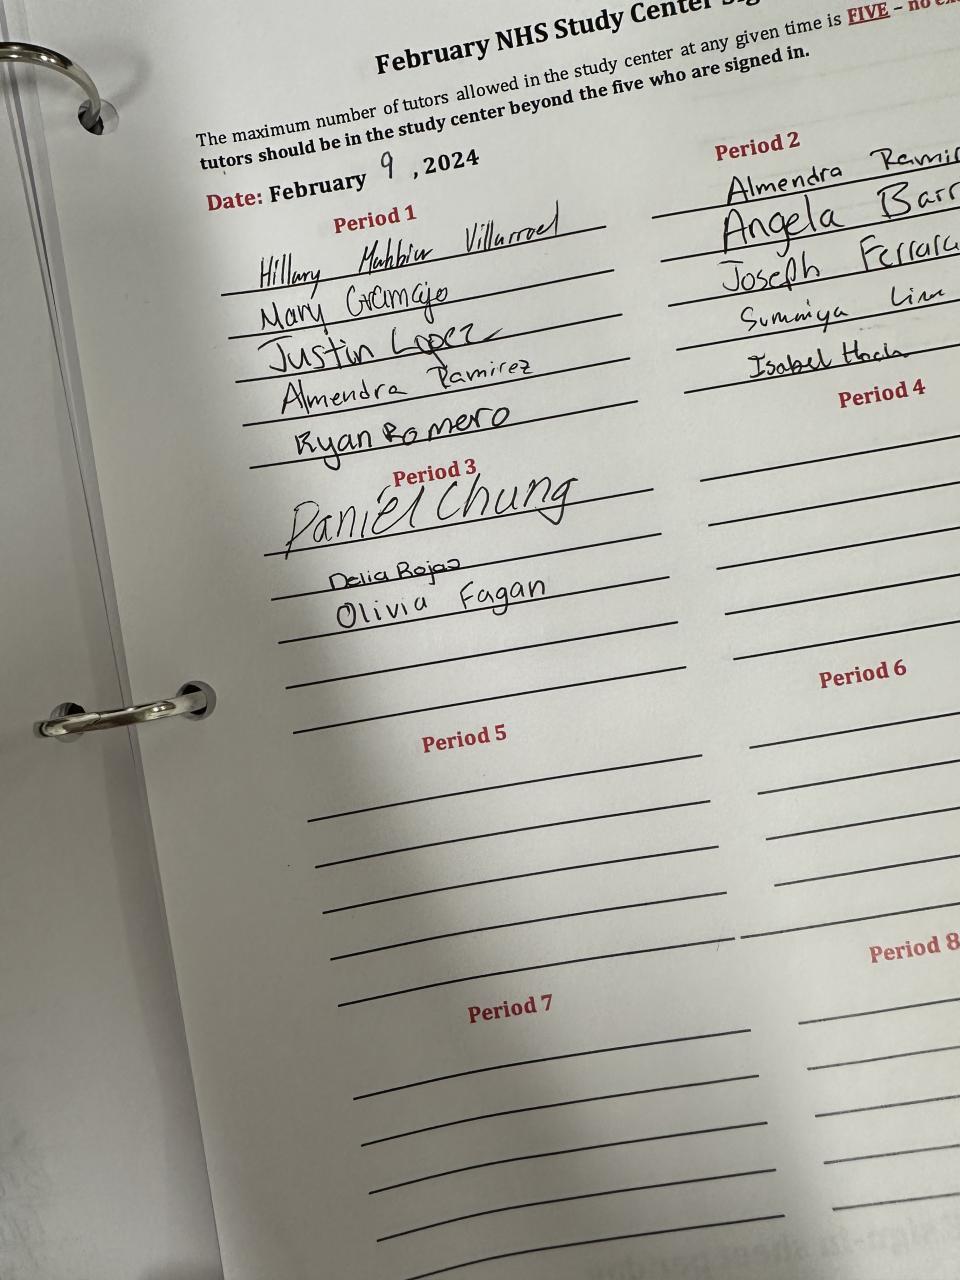 February NHS Study Center
The maximum number of tutors allowed in the study center at any given time is FIVE – no
tutors should be in the study center beyond the five who are signed in.
Date: February 9, 2024
Period 1
Hillary Villarroel
Mary Gramajo
Justin Lopez
Almendra Ramirez
Ryan Romero
Period 2
Almendra
Angela
Joseph
Summiya
Isabel
Period 3
Daniel Chung
Delia Rojas
Olivia Fagan
Period 4
Period 5
Period 6
Period 7
Period 8